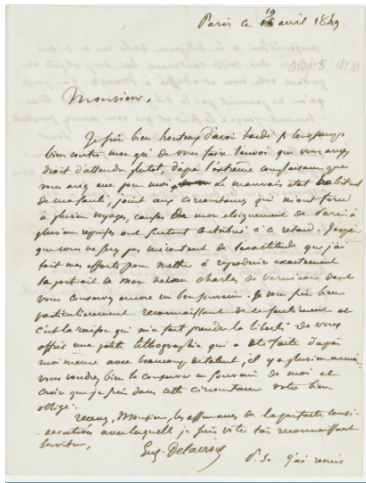 Paris ce 19 avril 1849.
Monsieur,
Je suis bien honteux d'avoir tardé si longtemps
bien contre mon gré de vous faire l'envoi que vous aviez
droit d'attendre plutôt, d'après l'extrême complaisance que
vous avez eue pour moi. Le mauvais état habituel
de ma santé, joint aux circonstances qui m'ont forcé
à plusieurs voyages, causes de mon éloignement de Paris à
plusieurs reprises ont surtout contribué à ce retard. J'espère
que vous ne serez pas mécontent de l'exactitude que j'ai
fait mes efforts pour mettre à reproduire exactement
le portrait de mon neveu Charles de Verninac dont
vous conservez encore un bon souvenir. Je vous suis bien
particulièrement reconnaissant de ce sentiment et
c'est la raison qui m'a fait prendre la liberté de vous
offrir une petite lithographie qui a été faite d'après
moi même avec beaucoup de talent, il y a plusieurs années.
vous voudrez bien la conserver en souvenir de moi et
croire que je suis dans cette circonstance votre bien
obligé.
recevez, Monsieur, les assurances de la parfaite consi-
dération avec laquelle je suis votre très reconnaissant
serviteur,
Eug. Delacroix
P. S. J'ai remis